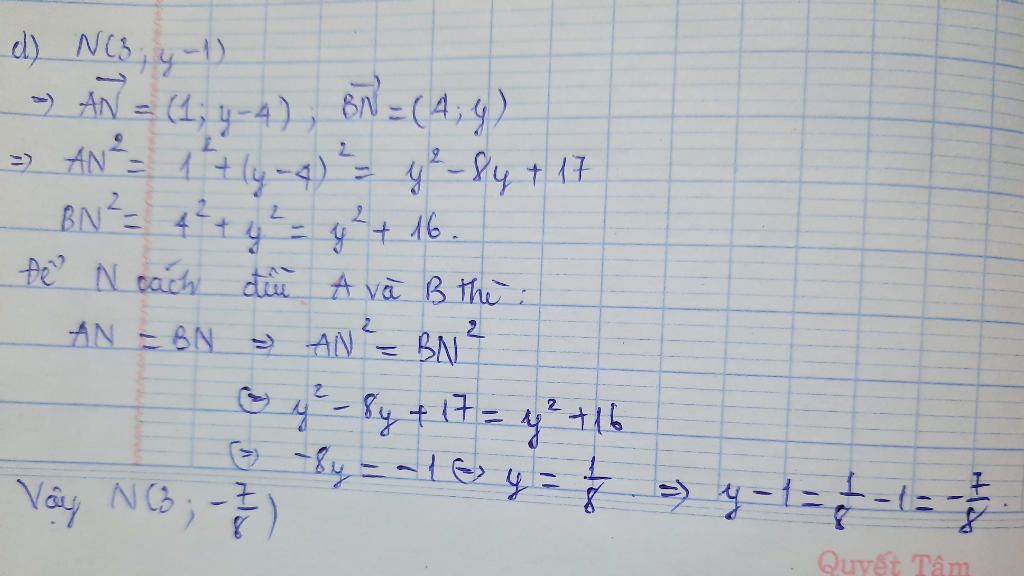 d) N(3; y-1)
=> AN = (1; y-4); BN = (4; y)
=> AN² = 1² + (y-4)² = y² - 8y + 17
BN² = 4² + y² = y² + 16.
Để N cách đều A và B thì:
AN = BN => AN² = BN²
<=> y² - 8y + 17 = y² + 16
<=> -8y = -1 <=> y = 1/8 => y - 1 = 1/8 - 1 = -7/8.
Vậy N(3; -7/8)
Quyết Tâm